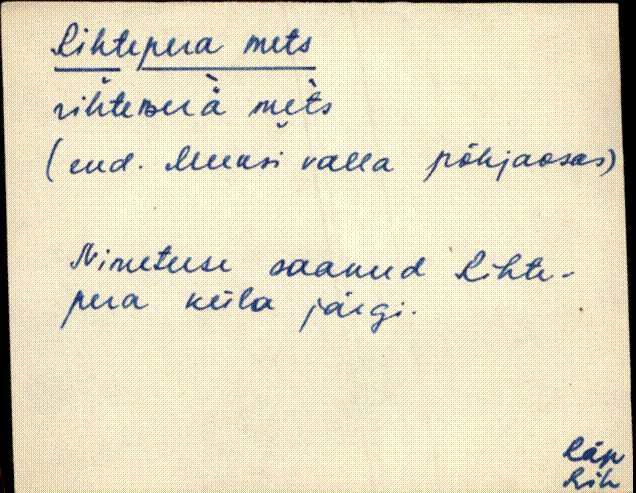 Rihtepera mets
rihteʙerä mèts
(end. Meeksi valla põhjaosas)
Nimetuse saanud Rihte-
pera küla järgi.
Räp
Rih